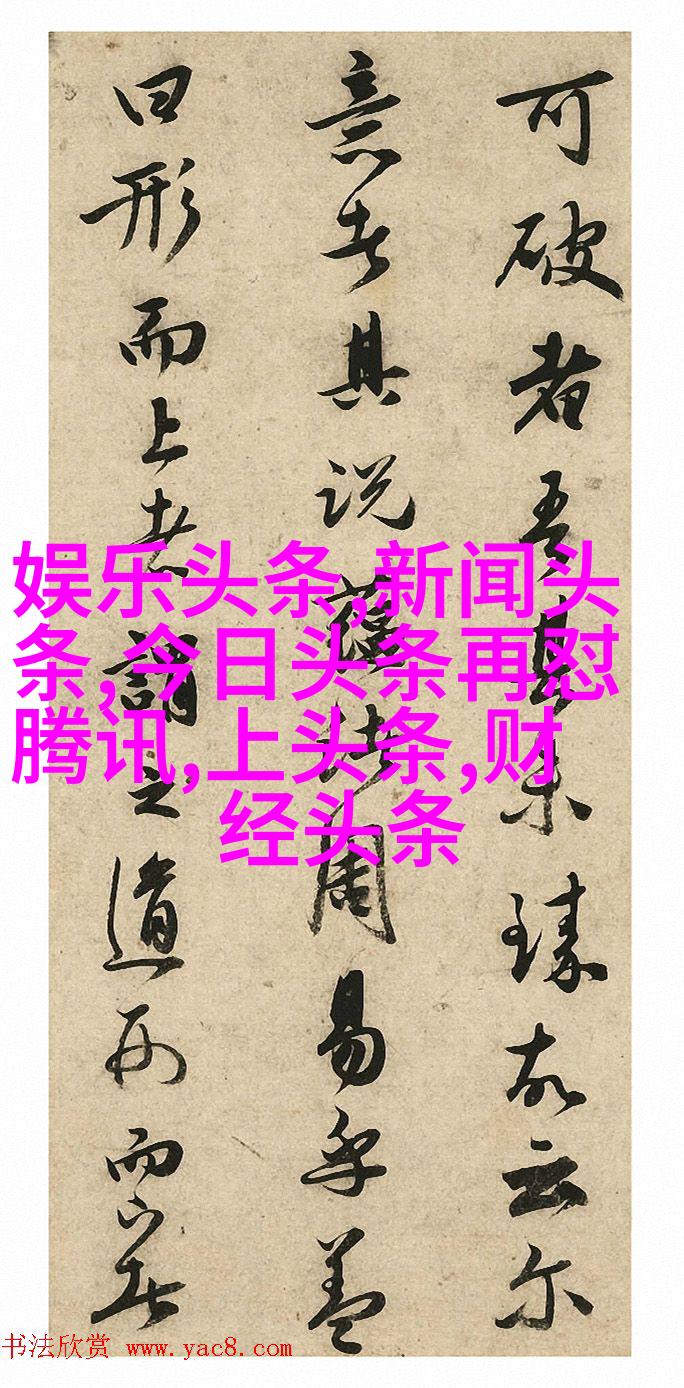 可破者吾未臻故云尔
意者其说蕴诸周易乎盖
曰形而上者謂之道形而下者
娱乐头条,新闻头
条,今日头条再怼
腾讯,上头条,财
经头条
书法欣赏 www.yac8.com